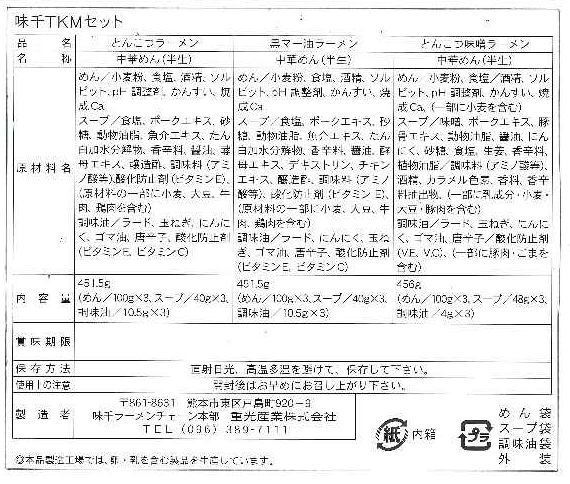 味千TKMセット
品名 とんこつラーメン 黒マー油ラーメン とんこつ味噌ラーメン
名称 中華めん(半生) 中華めん(半生) 中華めん(半生)
原材料名
めん/小麦粉、食塩、酒精、ソル
ビット、pH調整剤、かんすい、焼
成Ca
スープ/食塩、ポークエキス、砂
糖、動物油脂、魚介エキス、たん
白加水分解物、香辛料、醤油、酵
母エキス、醸造酢、調味料(アミ
ノ酸等)、酸化防止剤(ビタミンE)、
(原材料の一部に小麦、大豆、牛
肉、鶏肉を含む)
調味油/ラード、玉ねぎ、にんに
く、ゴマ油、唐辛子、酸化防止剤
(ビタミンE、ビタミンC)
めん/小麦粉、食塩、酒精、ソル
ビット、pH調整剤、かんすい、焼
成Ca
スープ/食塩、ポークエキス、砂
糖、動物油脂、魚介エキス、たん
白加水分解物、香辛料、醤油、酵
母エキス、デキストリン、チキン
エキス、醸造酢、調味料(アミノ
酸等)、酸化防止剤(ビタミンE)、
(原材料の一部に小麦、大豆、牛
肉、鶏肉を含む)
調味油/ラード、にんにく、玉ね
ぎ、ゴマ油、唐辛子、酸化防止剤
(ビタミンE、ビタミンC)
めん/小麦粉、食塩/酒精、ソル
ビット、pH調整剤、かんすい、焼
成Ca、(一部に小麦を含む)
スープ/味噌、ポークエキス、豚
骨エキス、動物油脂、醤油、にん
にく、砂糖、食塩、生姜、香辛料、
植物油脂/調味料(アミノ酸等)、
酒精、カラメル色素、香料、香辛
料抽出物、(一部に乳成分・小麦・
大豆・豚肉を含む)
調味油/ラード、玉ねぎ、にんに
く、ゴマ油、唐辛子/酸化防止剤
(V.E、V.C)、(一部に豚肉・ごまを
含む)
内容量
451.5g
(めん/100g×3、スープ/40g×3、
調味油/10.5g×3)
451.5g
(めん/100g×3、スープ/40g×3、
調味油/10.5g×3)
456g
(めん/100g×3、スープ/48g×3、
調味油/4g×3)
賞味期限
保存方法 直射日光、高温多湿を避けて、保存して下さい。
使用上の注意 開封後はお早めにお召し上がり下さい。
製造者
〒861-8031 熊本市東区戸島町920-9
味千ラーメンチェーン本部 重光産業株式会社
TEL(096)389-7111
紙 内箱
プラ
めん袋
スープ袋
調味油袋
外装
◎本品製造工場では、卵・乳を含む製品を生産しています。